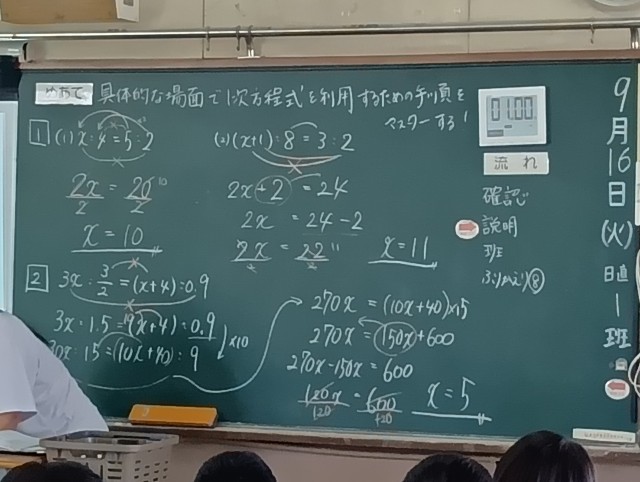 めあて 具体的な場面で1次方程式を利用するための手順を
マスターする!
01:00
流れ
確認
説明
班
ふりかえり⑧
9月16日(火)
日直
1班
1 (1) x:4=5:2
2x = 20 10
2 2
x = 10
(2) (x+1):8=3:2
2x+2=24
2x = 24-2
2x = 22 11
2 2
x=11
2 3x:3/2=(x+4):0.9
3x:1.5=(x+4):0.9
30x:15=(10x+40):9
×10
270x=(10x+40)×15
270x=150x+600
270x-150x=600
120x = 600
120 120
x=5